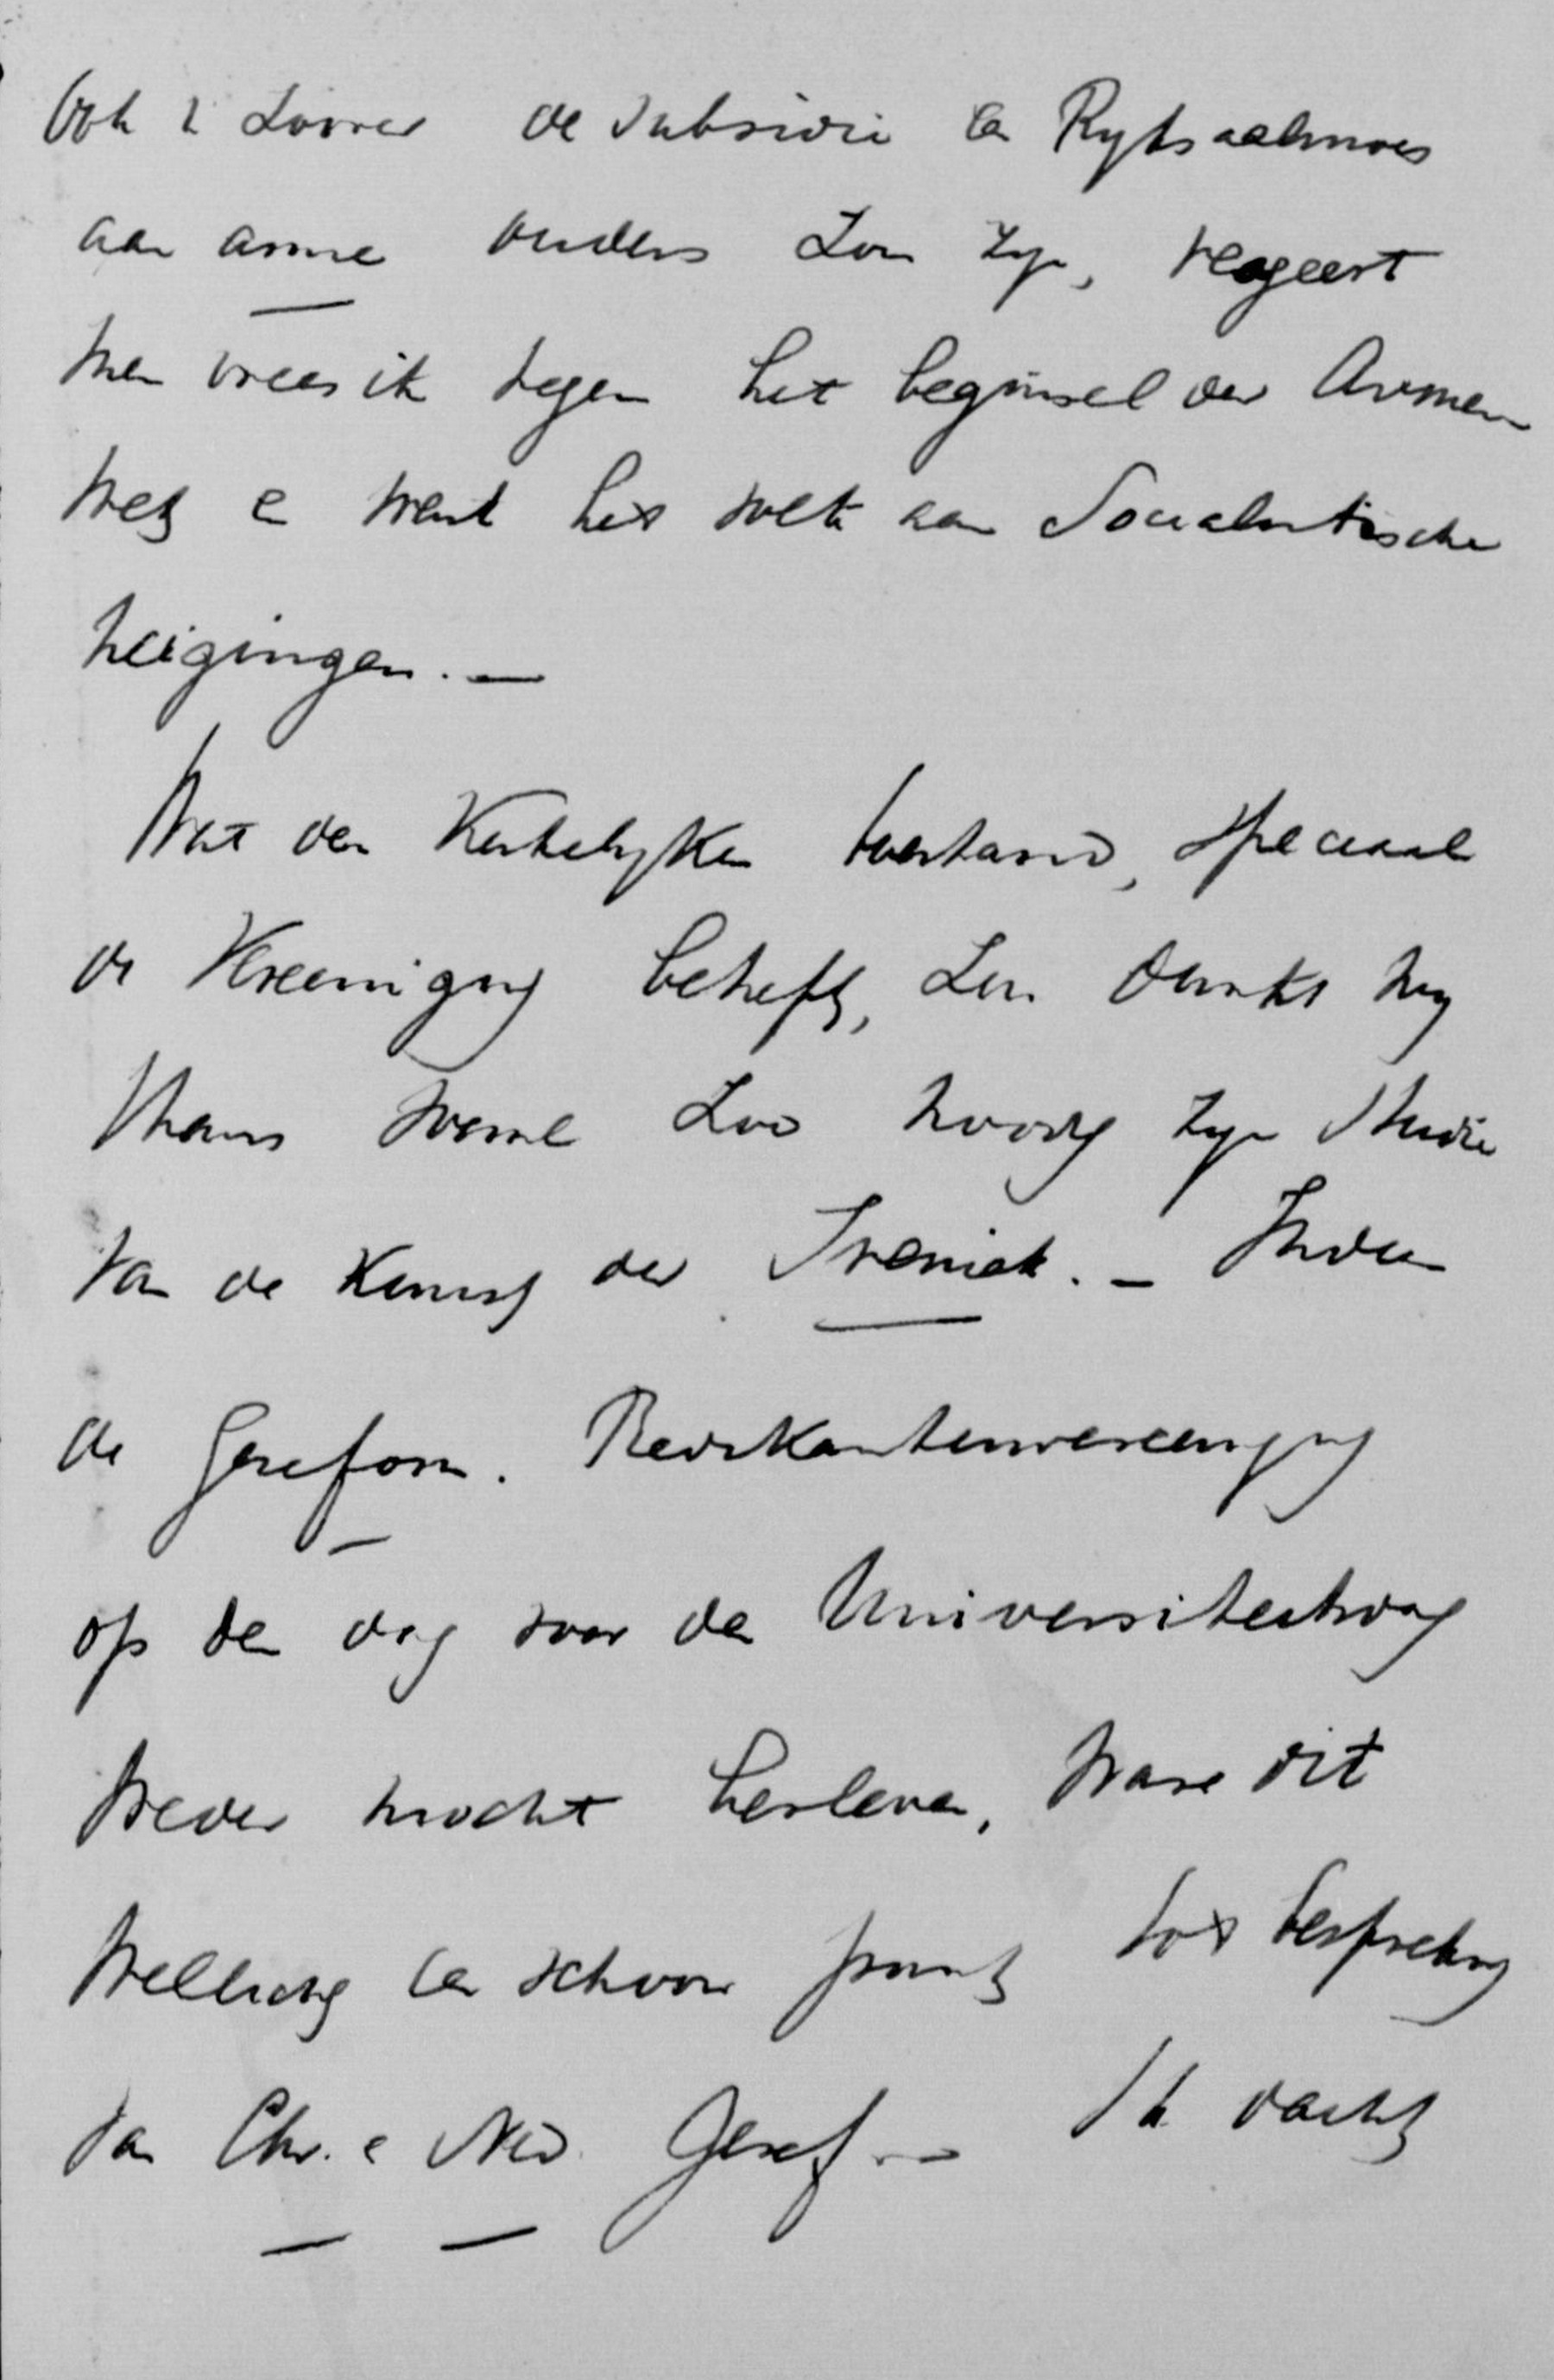 Ook i zoover de subsidie een Ryksaalmoes
aan arme ouders zou zyn, reageert
men vrees ik tegen het beginsel der Armen
wet en went het volk aan Socialistische
neigingen. —
Wat den Kerkelyken toestand, speciaal
de Vereeniging betreft, zou dunkt my
thans vooral zoo noodig zyn studie
van de Kunst der Ireniek. — Indien
de Gereform. Predikantenvereeniging
op den dag voor den Universiteitsdag
weder mocht herleven, ware dit
wellicht een schoon punt tot bespreking
van Chr. e Ned. Geref. — Ik dacht